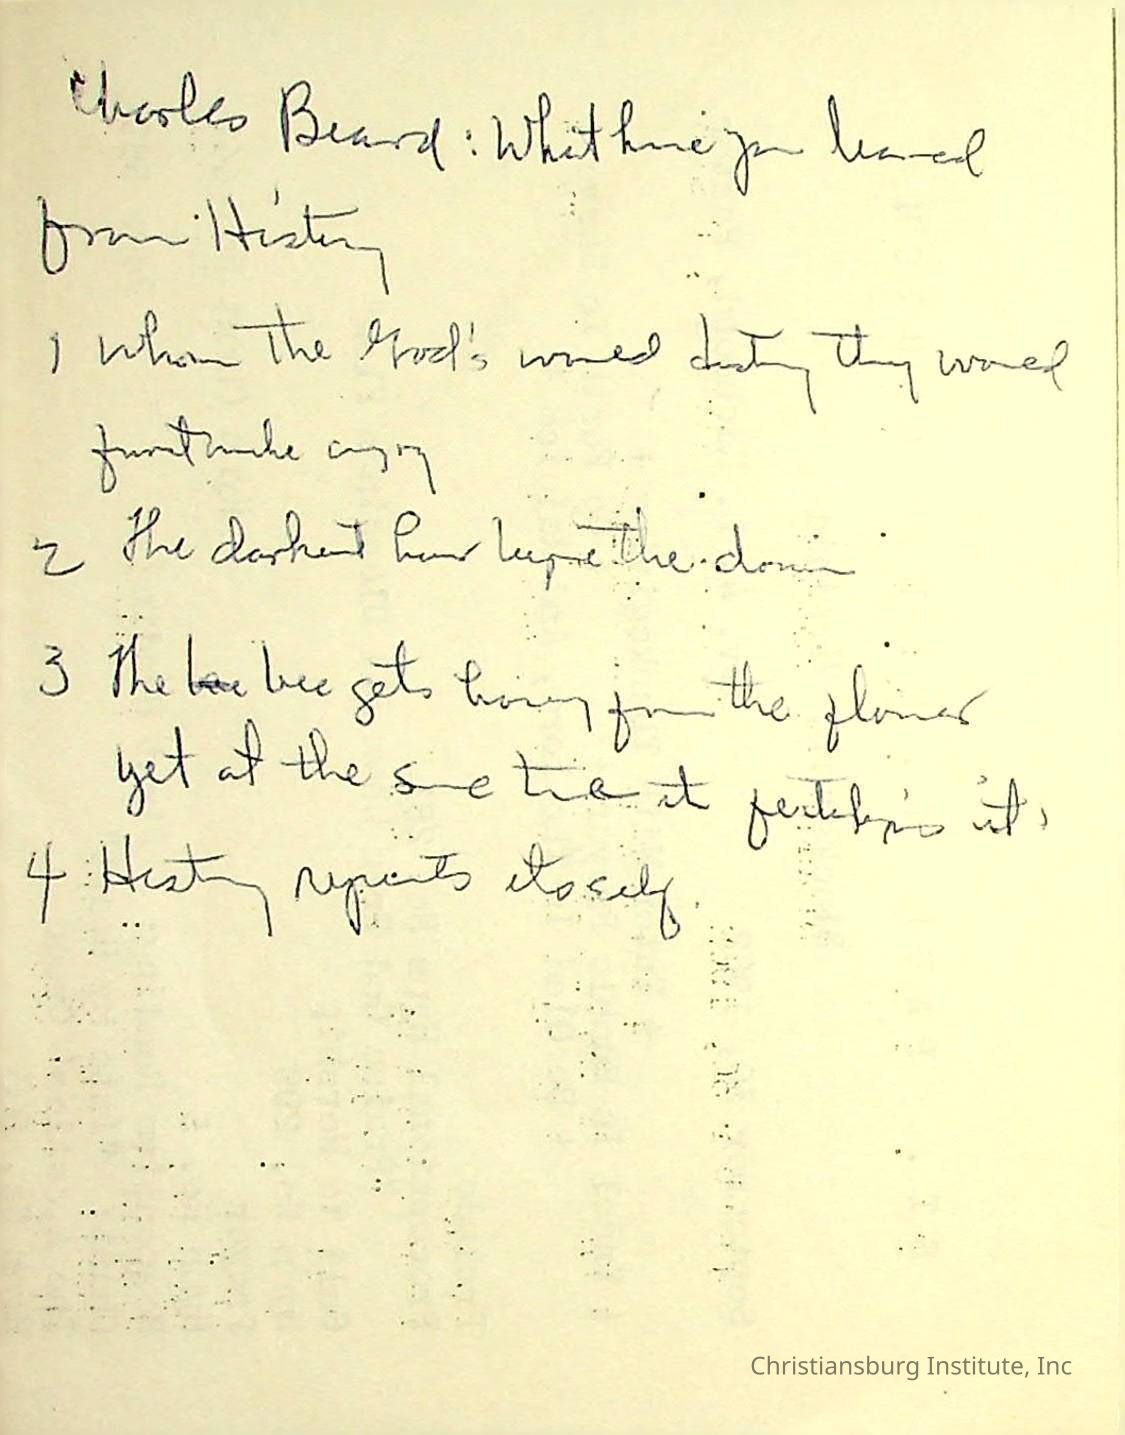 Charles Beard: What have you learned
from History
1 Whom the God's would destroy they would
first make angry
2 The darkest hour before the dawn
3 The bee bee gets honey from the flower
yet at the same time it fertilizes it.
4 History repeats itself.
Christiansburg Institute, Inc